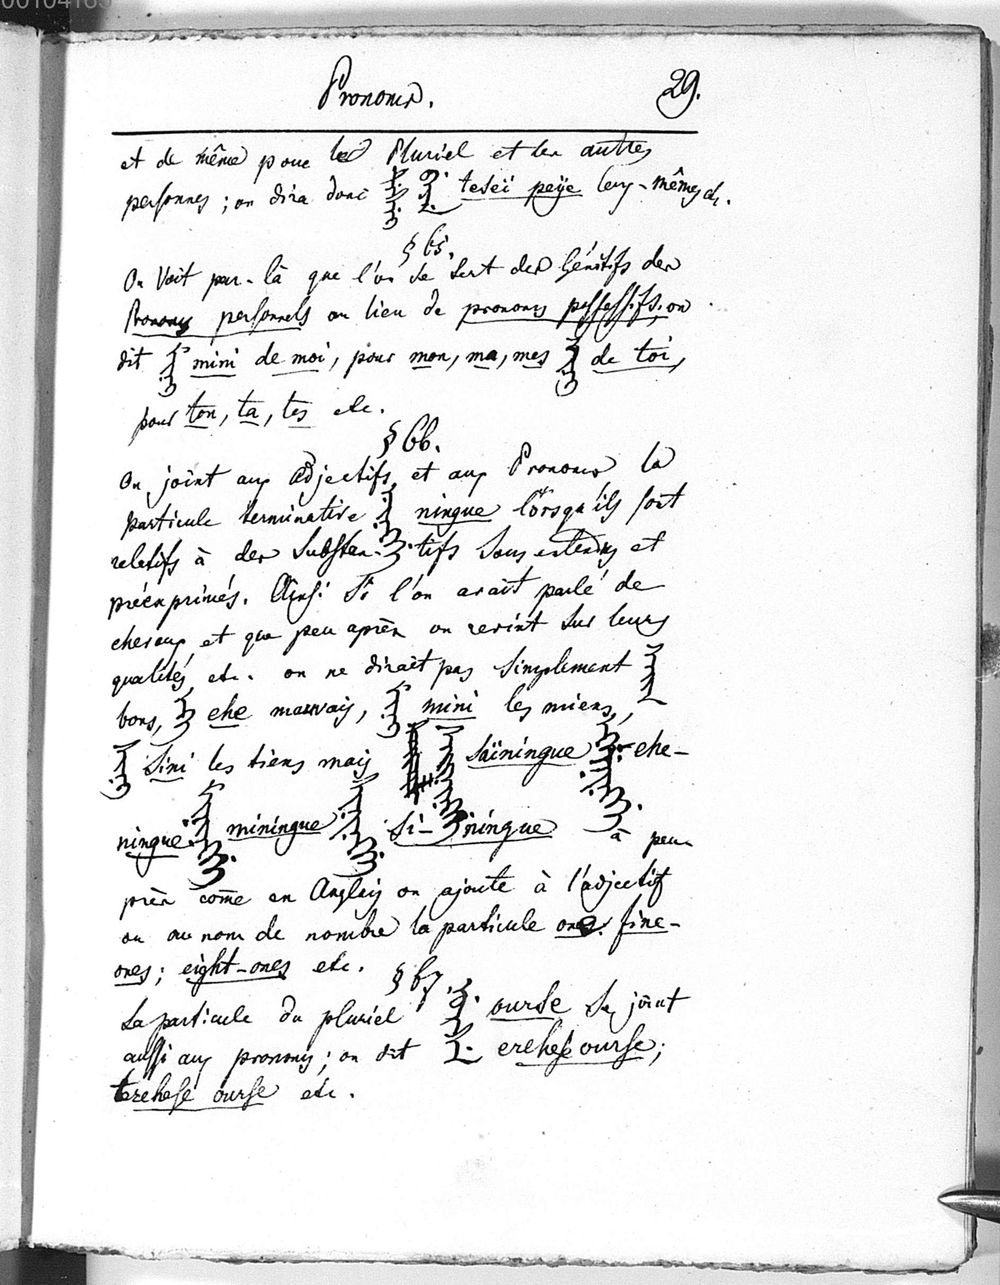 00104165
Pronoms. 29.
et de même pour le Pluriel et les autres
personnes ; on dira donc teseï peye leurs-mêmes &c.
§ 65.
On voit par-là que l'on se sert des Génitifs des
Pronoms personnels au lieu de pronoms possessifs, on
dit mini de moi, pour mon, ma, mes de toi,
pour ton, ta, tes etc.
§ 66.
On joint aux adjectifs, et aux Pronoms la
particule terminative ningue lorsqu'ils sont
relatifs à des Substan- tifs sous entendus et
préexprimés. Ainsi Si l'on avait parlé de
chevaux, et que peu après on revint sur leurs
qualités etc. on ne dirait pas simplement
bons, ehe mauvais, mini les miens,
Sini les tiens mais saïningue ehe-
ningue miningue Si- ningue à peu
près come en Anglais on ajoute à l'adjectif
ou au nom de nombre la particule ones. fine-
ones ; eight-ones etc.
§ 67.
La particule du pluriel ourse Se joint
aussi aux pronoms ; on dit erehese ourse ;
terehese ourse etc.